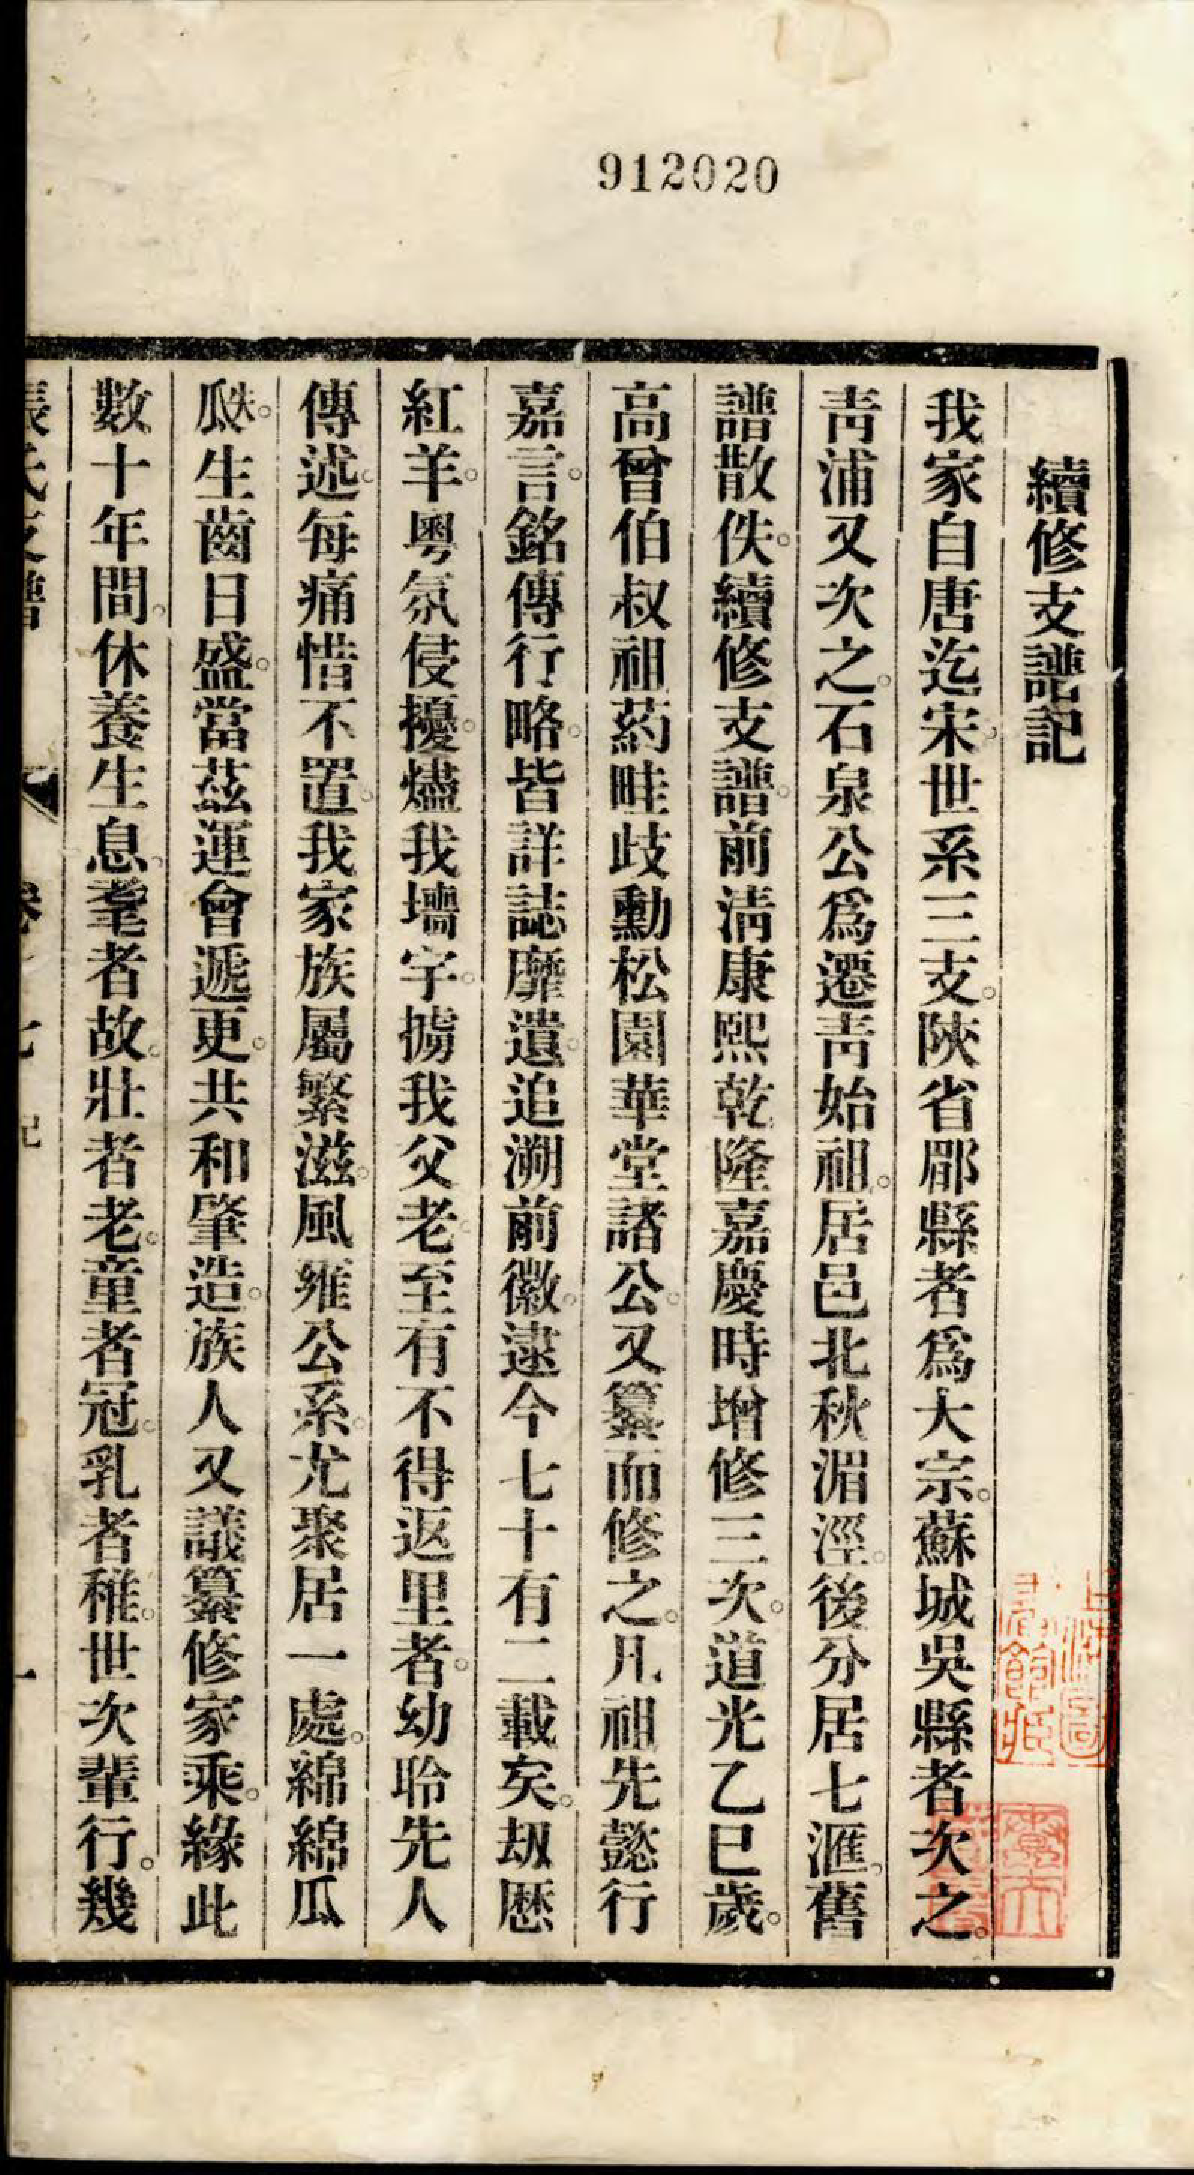 912020
續修支譜記
我家自唐迄宋世系三支。陝省郿縣者爲大宗。蘇城吳縣者次之。
靑浦又次之。石泉公爲遷靑始祖。居邑北秋湄涇。後分居七滙。舊
譜散佚。續修支譜。前淸康熙乾隆嘉慶時增修三次。道光乙巳歲。
高曾伯叔祖葯畦歧勳松園華堂諸公。又纂而修之。凡祖先懿行
嘉言。銘傳行略。皆詳誌靡遺。追溯前徽。逮今七十有二載矣。刼歷
紅羊。粵氛侵擾。燼我墻宇。擄我父老。至有不得返里者。幼聆先人
傳述。每痛惜不置。我家族屬繁滋。風雍公系。尤聚居一處。綿綿瓜
瓜瓞。生齒日盛。當茲運會遞更。共和肇造。族人又議纂修家乘。緣此
數十年間。休養生息。耄者故。壯者老。童者冠。乳者稚。世次輩行。幾
張氏支譜 卷 七 記 一